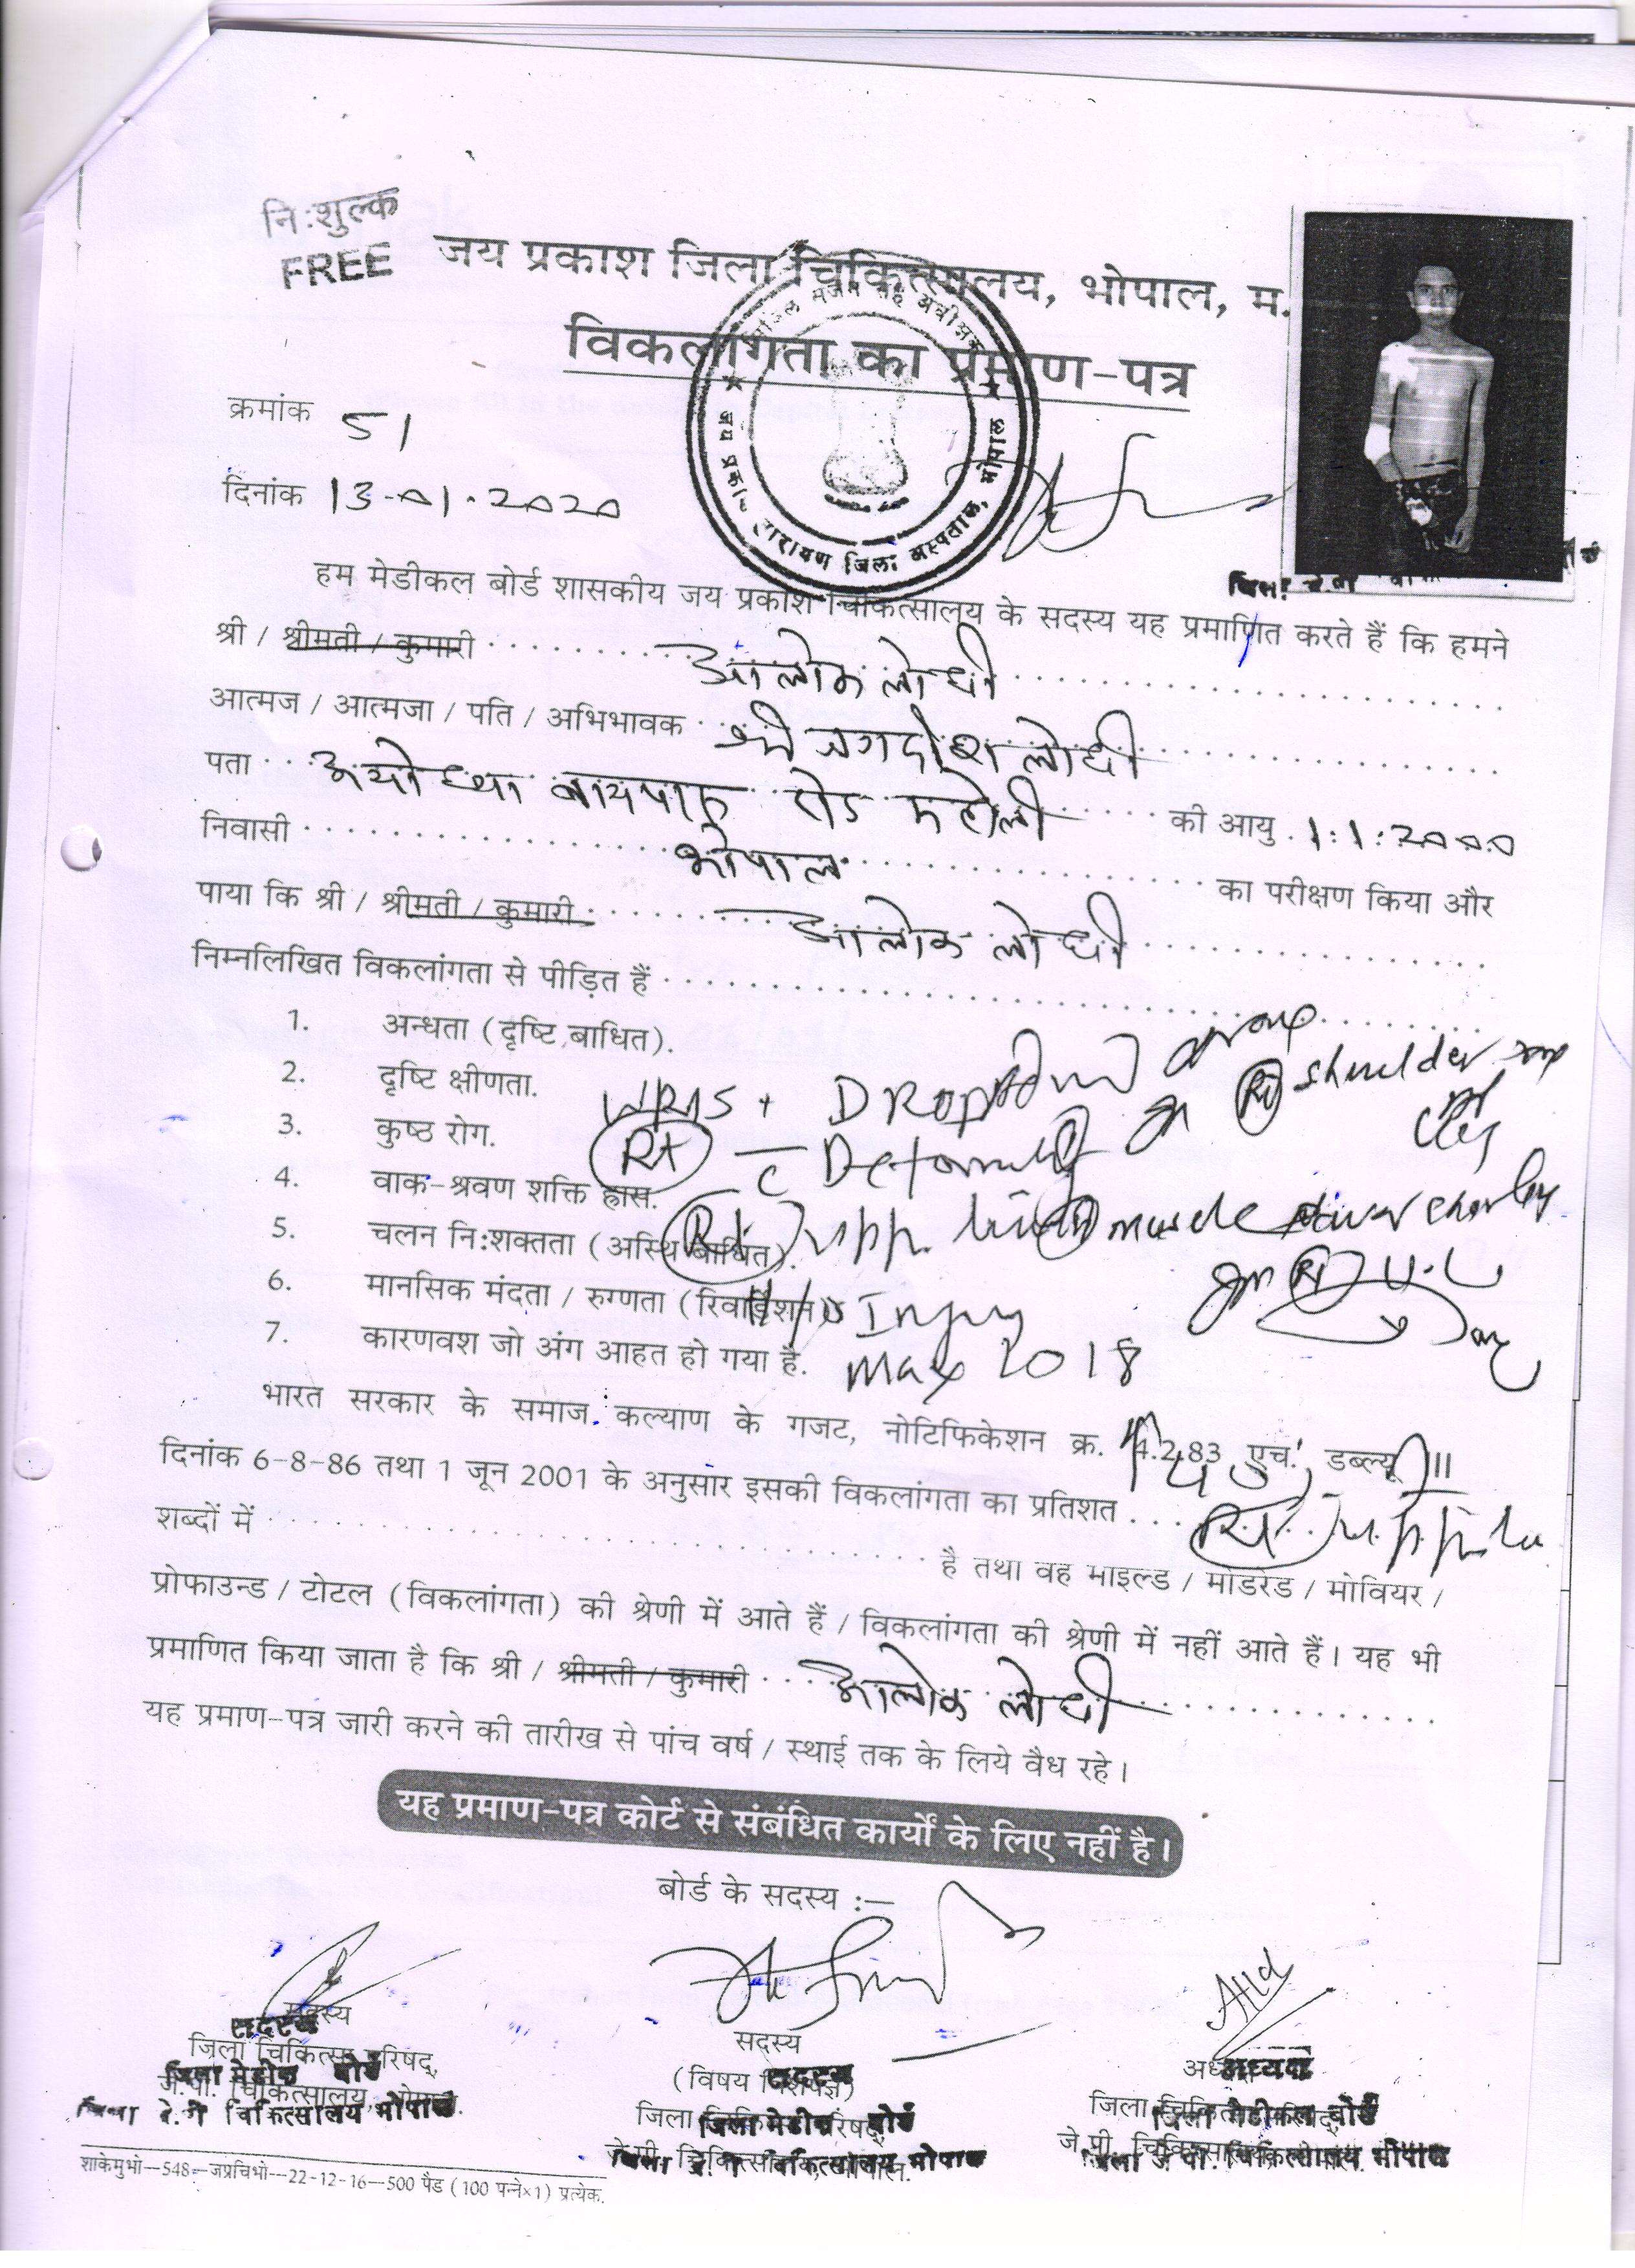 नि:शुल्क
FREE
जय प्रकाश जिला चिकित्सालय, भोपाल, म.
विकलांगता का प्रमाण-पत्र
क्रमांक 51
दिनांक 13-01-2020
हम मेडीकल बोर्ड शासकीय जय प्रकाश चिकित्सालय के सदस्य यह प्रमाणित करते हैं कि हमने
श्री / श्रीमती / कुमारी आलोक लोधी
आत्मज / आत्मजा / पति / अभिभावक श्री जगदीश लोधी
पता अयोध्या बायपास रोड की आयु 1:1:2000
निवासी भोपाल का परीक्षण किया और
पाया कि श्री / श्रीमती / कुमारी आलोक लोधी
निम्नलिखित विकलांगता से पीड़ित हैं
1. अन्धता (दृष्टि बाधित).
2. दृष्टि क्षीणता.
3. कुष्ठ रोग.
4. वाक-श्रवण शक्ति ह्रास.
5. चलन नि:शक्तता (अस्थि बाधित).
6. मानसिक मंदता / रुग्णता (रिवार्डेशन)
7. कारणवश जो अंग आहत हो गया है.
Rt shoulder
Rt c Deformity
Rt upp. limb muscle
Rt U.L
H/o Injury
May 2018
भारत सरकार के समाज कल्याण के गजट, नोटिफिकेशन क्र. 4.2.83 एच. डब्ल्यू III
दिनांक 6-8-86 तथा 1 जून 2001 के अनुसार इसकी विकलांगता का प्रतिशत
शब्दों में है तथा वह माइल्ड / मोडरेड / मोवियर /
प्रोफाउन्ड / टोटल (विकलांगता) की श्रेणी में आते हैं / विकलांगता की श्रेणी में नहीं आते हैं। यह भी
प्रमाणित किया जाता है कि श्री / श्रीमती / कुमारी आलोक लोधी
यह प्रमाण-पत्र जारी करने की तारीख से पांच वर्ष / स्थाई तक के लिये वैध रहे।
यह प्रमाण-पत्र कोर्ट से संबंधित कार्यों के लिए नहीं है।
बोर्ड के सदस्य :—
सदस्य
जिला चिकित्सा परिषद्,
जे.पी. चिकित्सालय, भोपाल.
सदस्य
(विषय विशेषज्ञ)
जिला चिकित्सा परिषद्,
जे.पी. चिकित्सालय, भोपाल.
अध्यक्ष
जिला चिकित्सा परिषद्,
जे.पी. चिकित्सालय, भोपाल.
शाकेमुभो—548—जप्रचिभो—22-12-16—500 पैड (100 पन्ने×1) प्रत्येक.